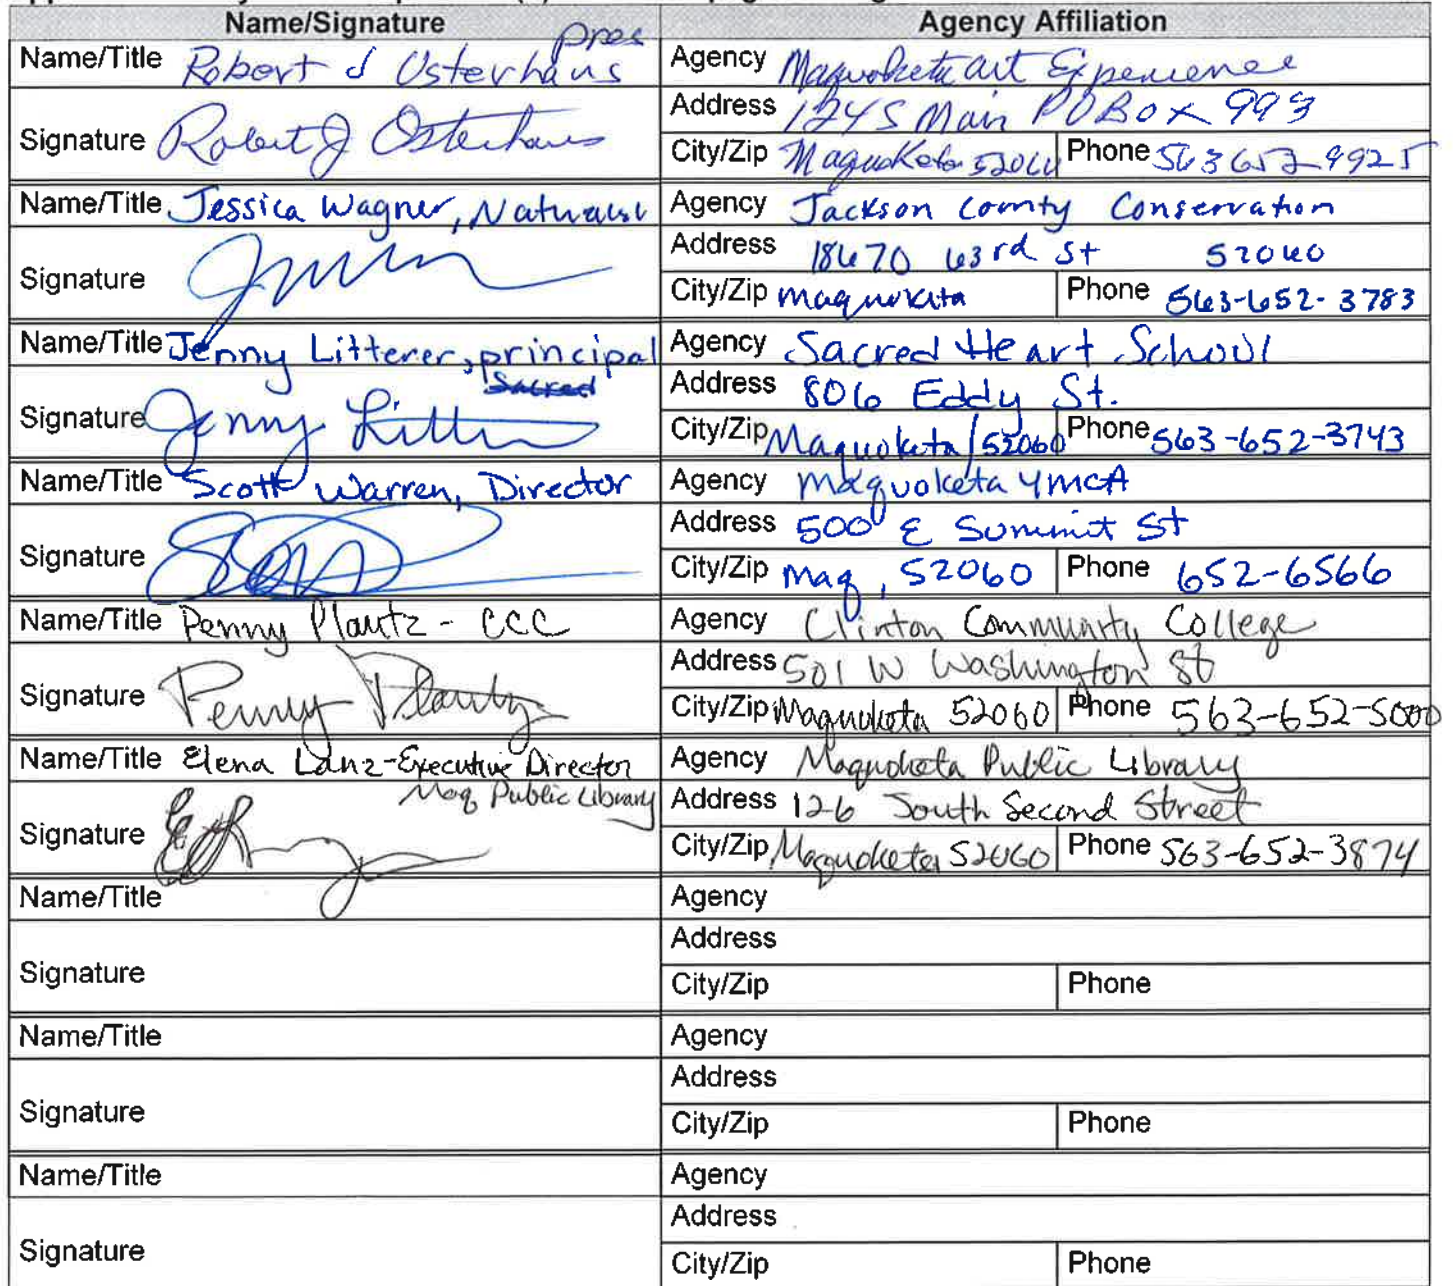 Name/Signature Agency Affiliation
Name/Title Robert J Osterhaus pres
Agency Maquoketa Art Experience
Signature Robert J Osterhaus
Address 124 S Main PO Box 993
City/Zip Maquoketa 52060 Phone 563 652 9925
Name/Title Jessica Wagner, Naturalist
Agency Jackson County Conservation
Signature
Address 18670 63rd St 52060
City/Zip maquoketa Phone 563-652-3783
Name/Title Jenny Litterer, principal
Sacred
Agency Sacred Heart School
Signature Jenny Litterer
Address 806 Eddy St.
City/Zip Maquoketa/52060 Phone 563-652-3743
Name/Title Scott Warren, Director
Agency Maquoketa YMCA
Signature
Address 500 E Summit St
City/Zip Maq, 52060 Phone 652-6566
Name/Title Penny Plautz - CCC
Agency Clinton Community College
Signature Penny Plautz
Address 501 W Washington St
City/Zip Maquoketa 52060 Phone 563-652-5000
Name/Title Elena Lanz-Executive Director
Maq Public Library
Agency Maquoketa Public Library
Signature
Address 126 South Second Street
City/Zip Maquoketa 52060 Phone 563-652-3874
Name/Title
Agency
Signature
Address
City/Zip Phone
Name/Title
Agency
Signature
Address
City/Zip Phone
Name/Title
Agency
Signature
Address
City/Zip Phone